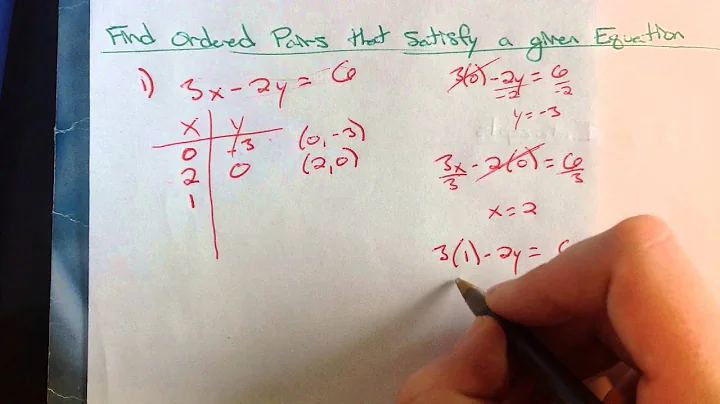 Find Ordered Pairs that Satisfy a given Equation
1) 3x - 2y = 6
x y
0 -3 (0, -3)
2 0 (2, 0)
1
3(0) - 2y = 6
-2 -2
y = -3
3x - 2(0) = 6
3 3
x = 2
3(1) - 2y =